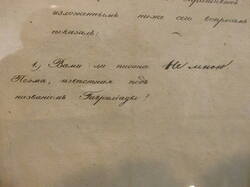 изложеннымъ ниже сего вопросамъ
показалъ:
1.) Вами ли писана Не мною
Поэма, извѣстная подъ
названіемъ Гавриліада?